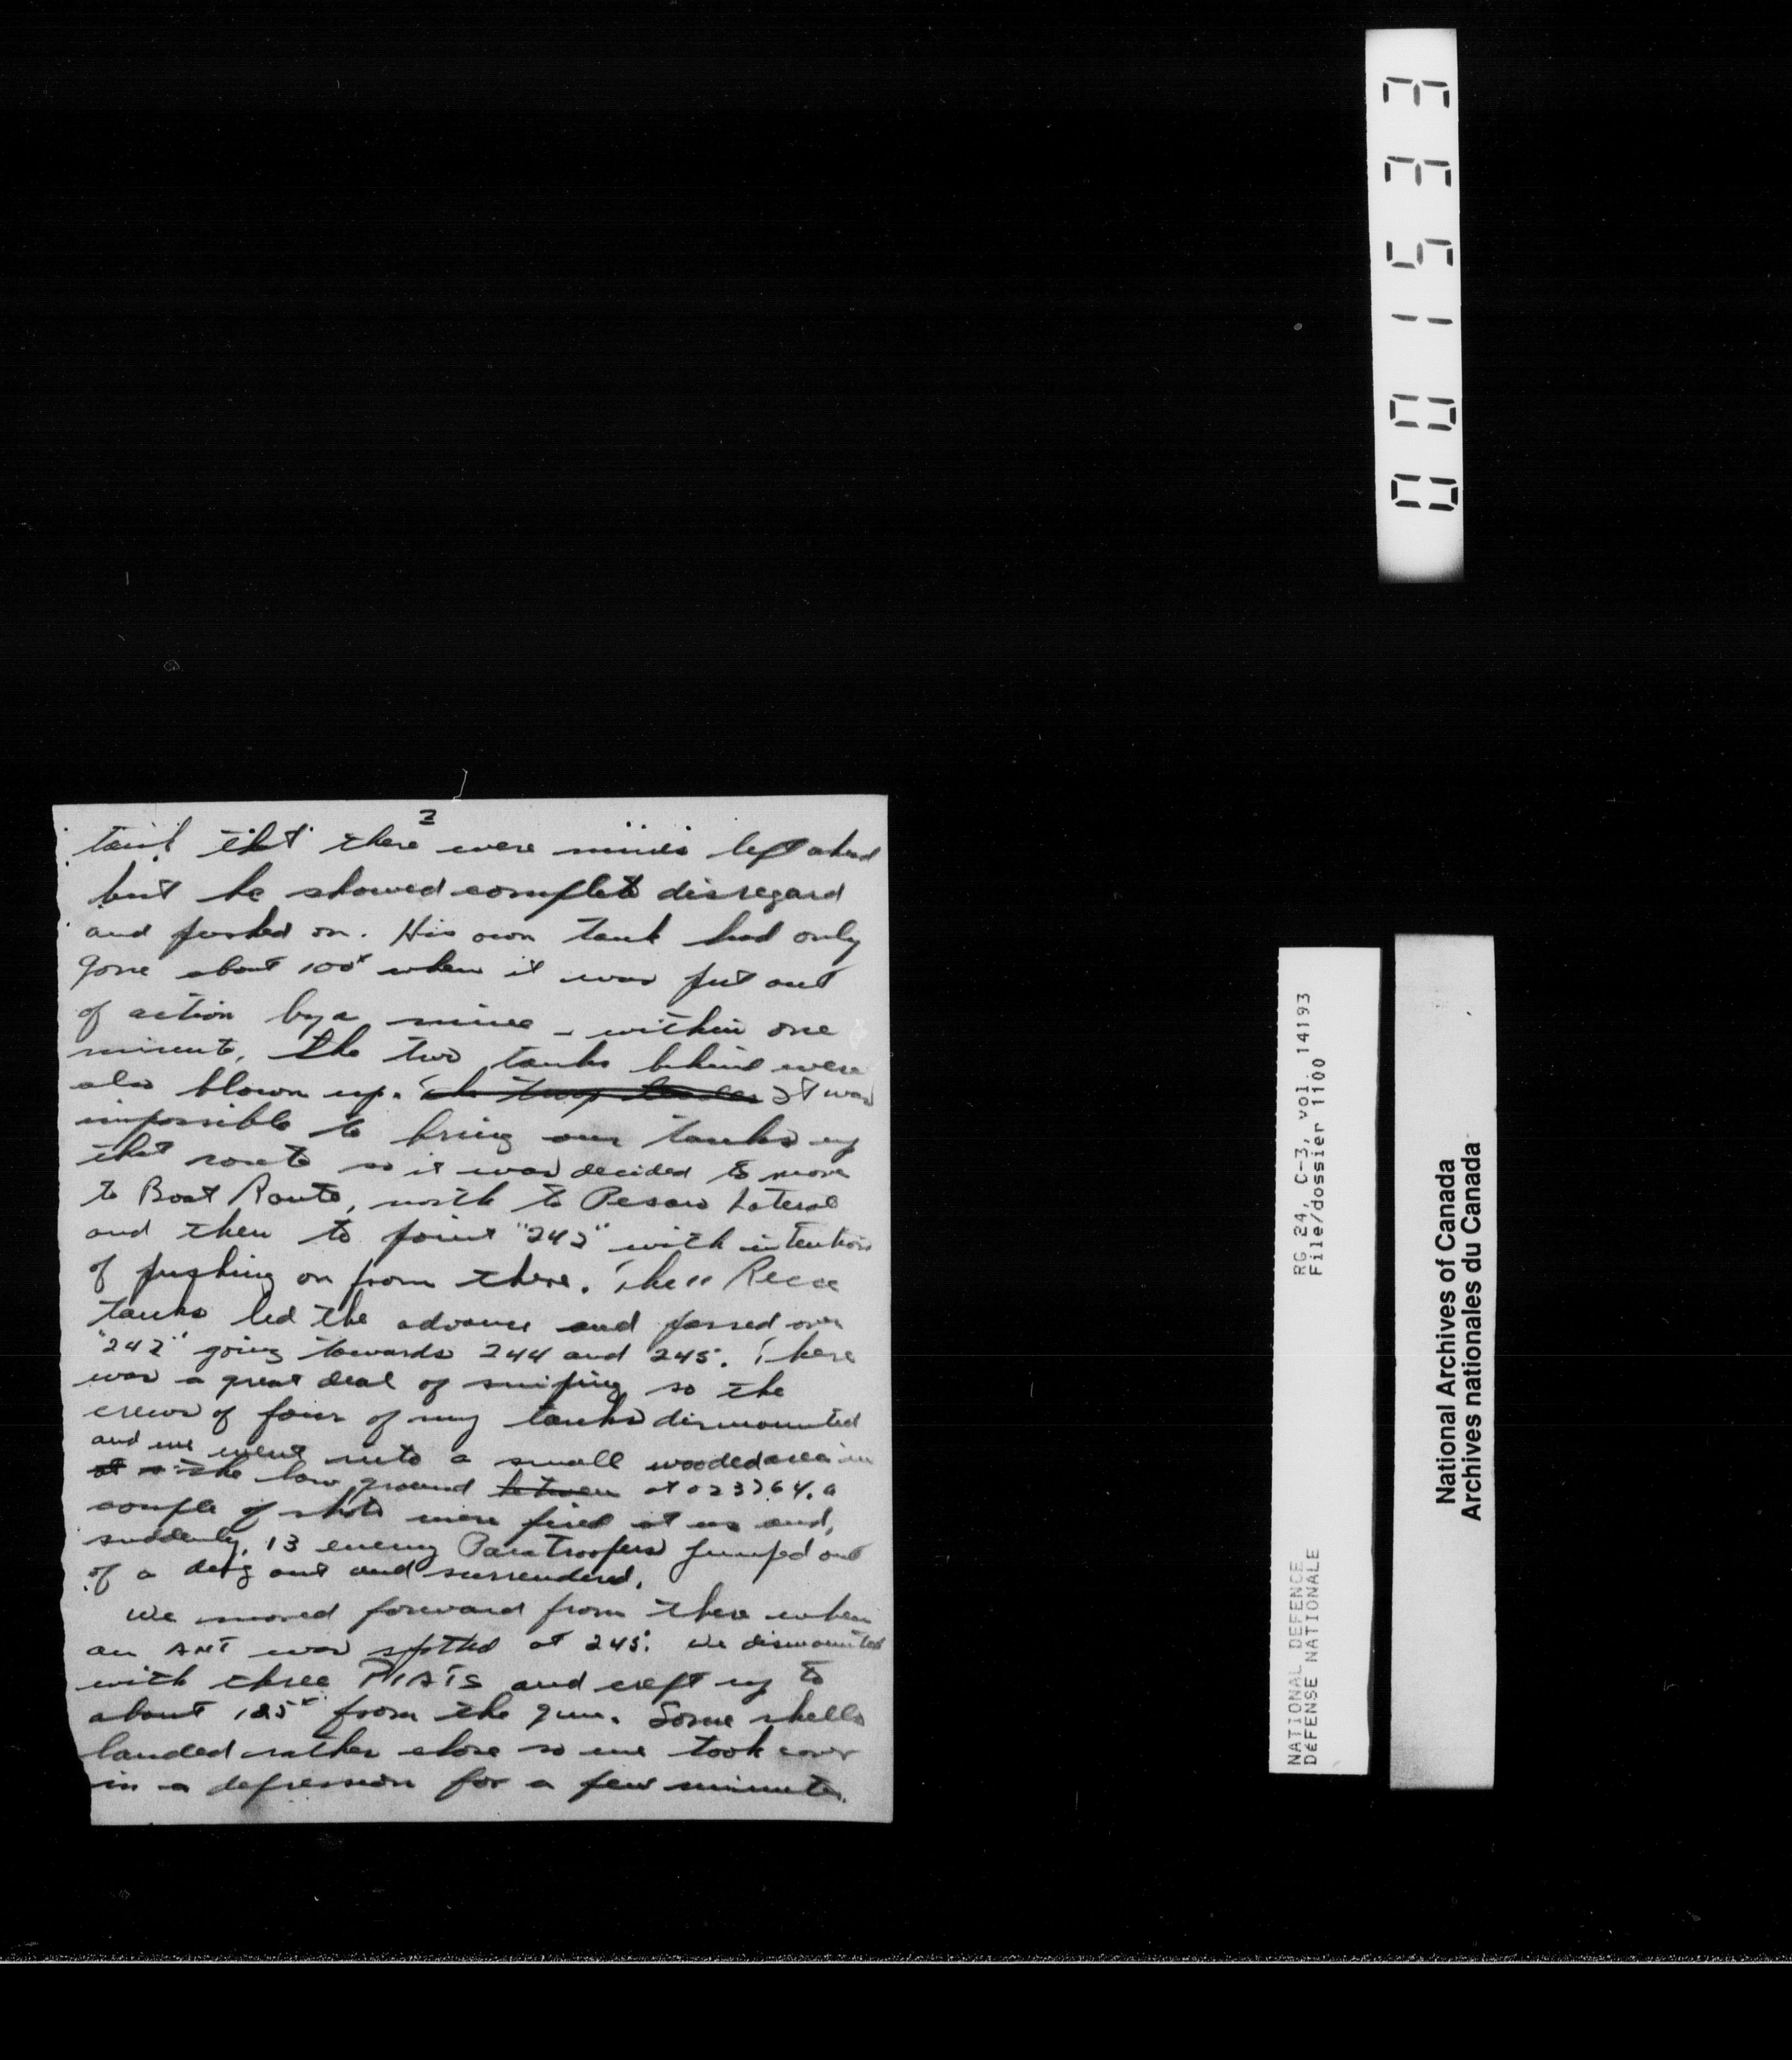 2
tain! that there were mines left ahead
but he showed complete disregard
and pushed on. His own tank had only
gone about 100ˣ when it was put out
of action by a mine - within one
minute, the two tanks behind were
also blown up. It was
impossible to bring our tanks up
that route so it was decided to move
to Boat Route, north to Pesaro Lateral
and then to point "242" with intention
of pushing on from there. The 11 Recce
tanks led the advance and passed over
"242" going towards 244 and 245. There
was a great deal of sniping so the
crews of four of my tanks dismounted
and we went into a small wooded area in
the low ground between at 023764. a
couple of shots were fired at us and,
suddenly, 13 enemy Paratroopers jumped out
of a dug out and surrendered.
We moved forward from there when
an ANT was spotted at 245. We dismounted
with three PIATS and crept up to
about 125ˣ from the gun. Some shells
landed rather close so we took cover
in a depression for a few minutes.
001533
NATIONAL DEFENCE RG 24, C-3, vol. 14193
DéFENSE NATIONALE File/dossier 1100
National Archives of Canada
Archives nationales du Canada